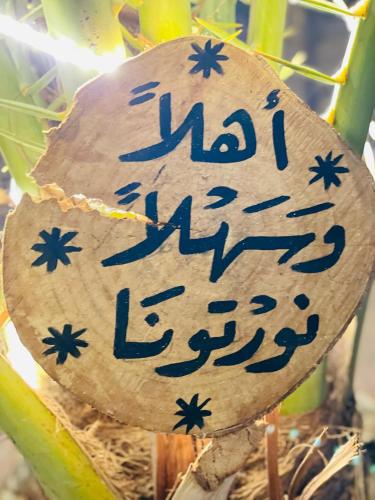 أهلاً
وَسَهْلاً
نورْتونَا